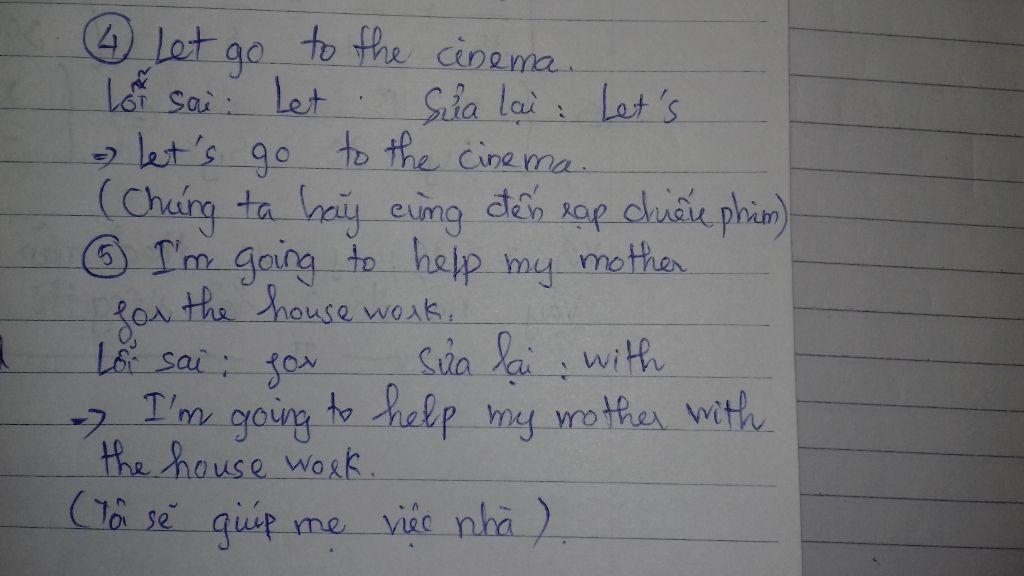 ④ Let go to the cinema.
Lỗi sai: Let. Sửa lại: Let's
=> let's go to the cinema.
(Chúng ta hãy cùng đến rạp chiếu phim)
⑤ I'm going to help my mother
for the house work.
Lỗi sai: for Sửa lại: with
=> I'm going to help my mother with
the house work.
(Tôi sẽ giúp mẹ việc nhà).